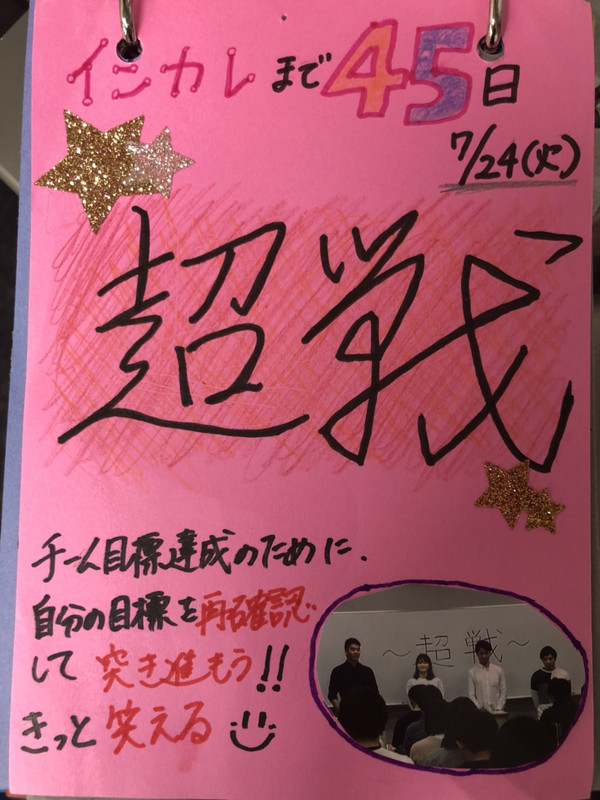 インカレまで45日
7/24(火)
超戦
チーム目標達成のために、
自分の目標を再確認
して突き進もう!!
きっと笑える
～超戦～